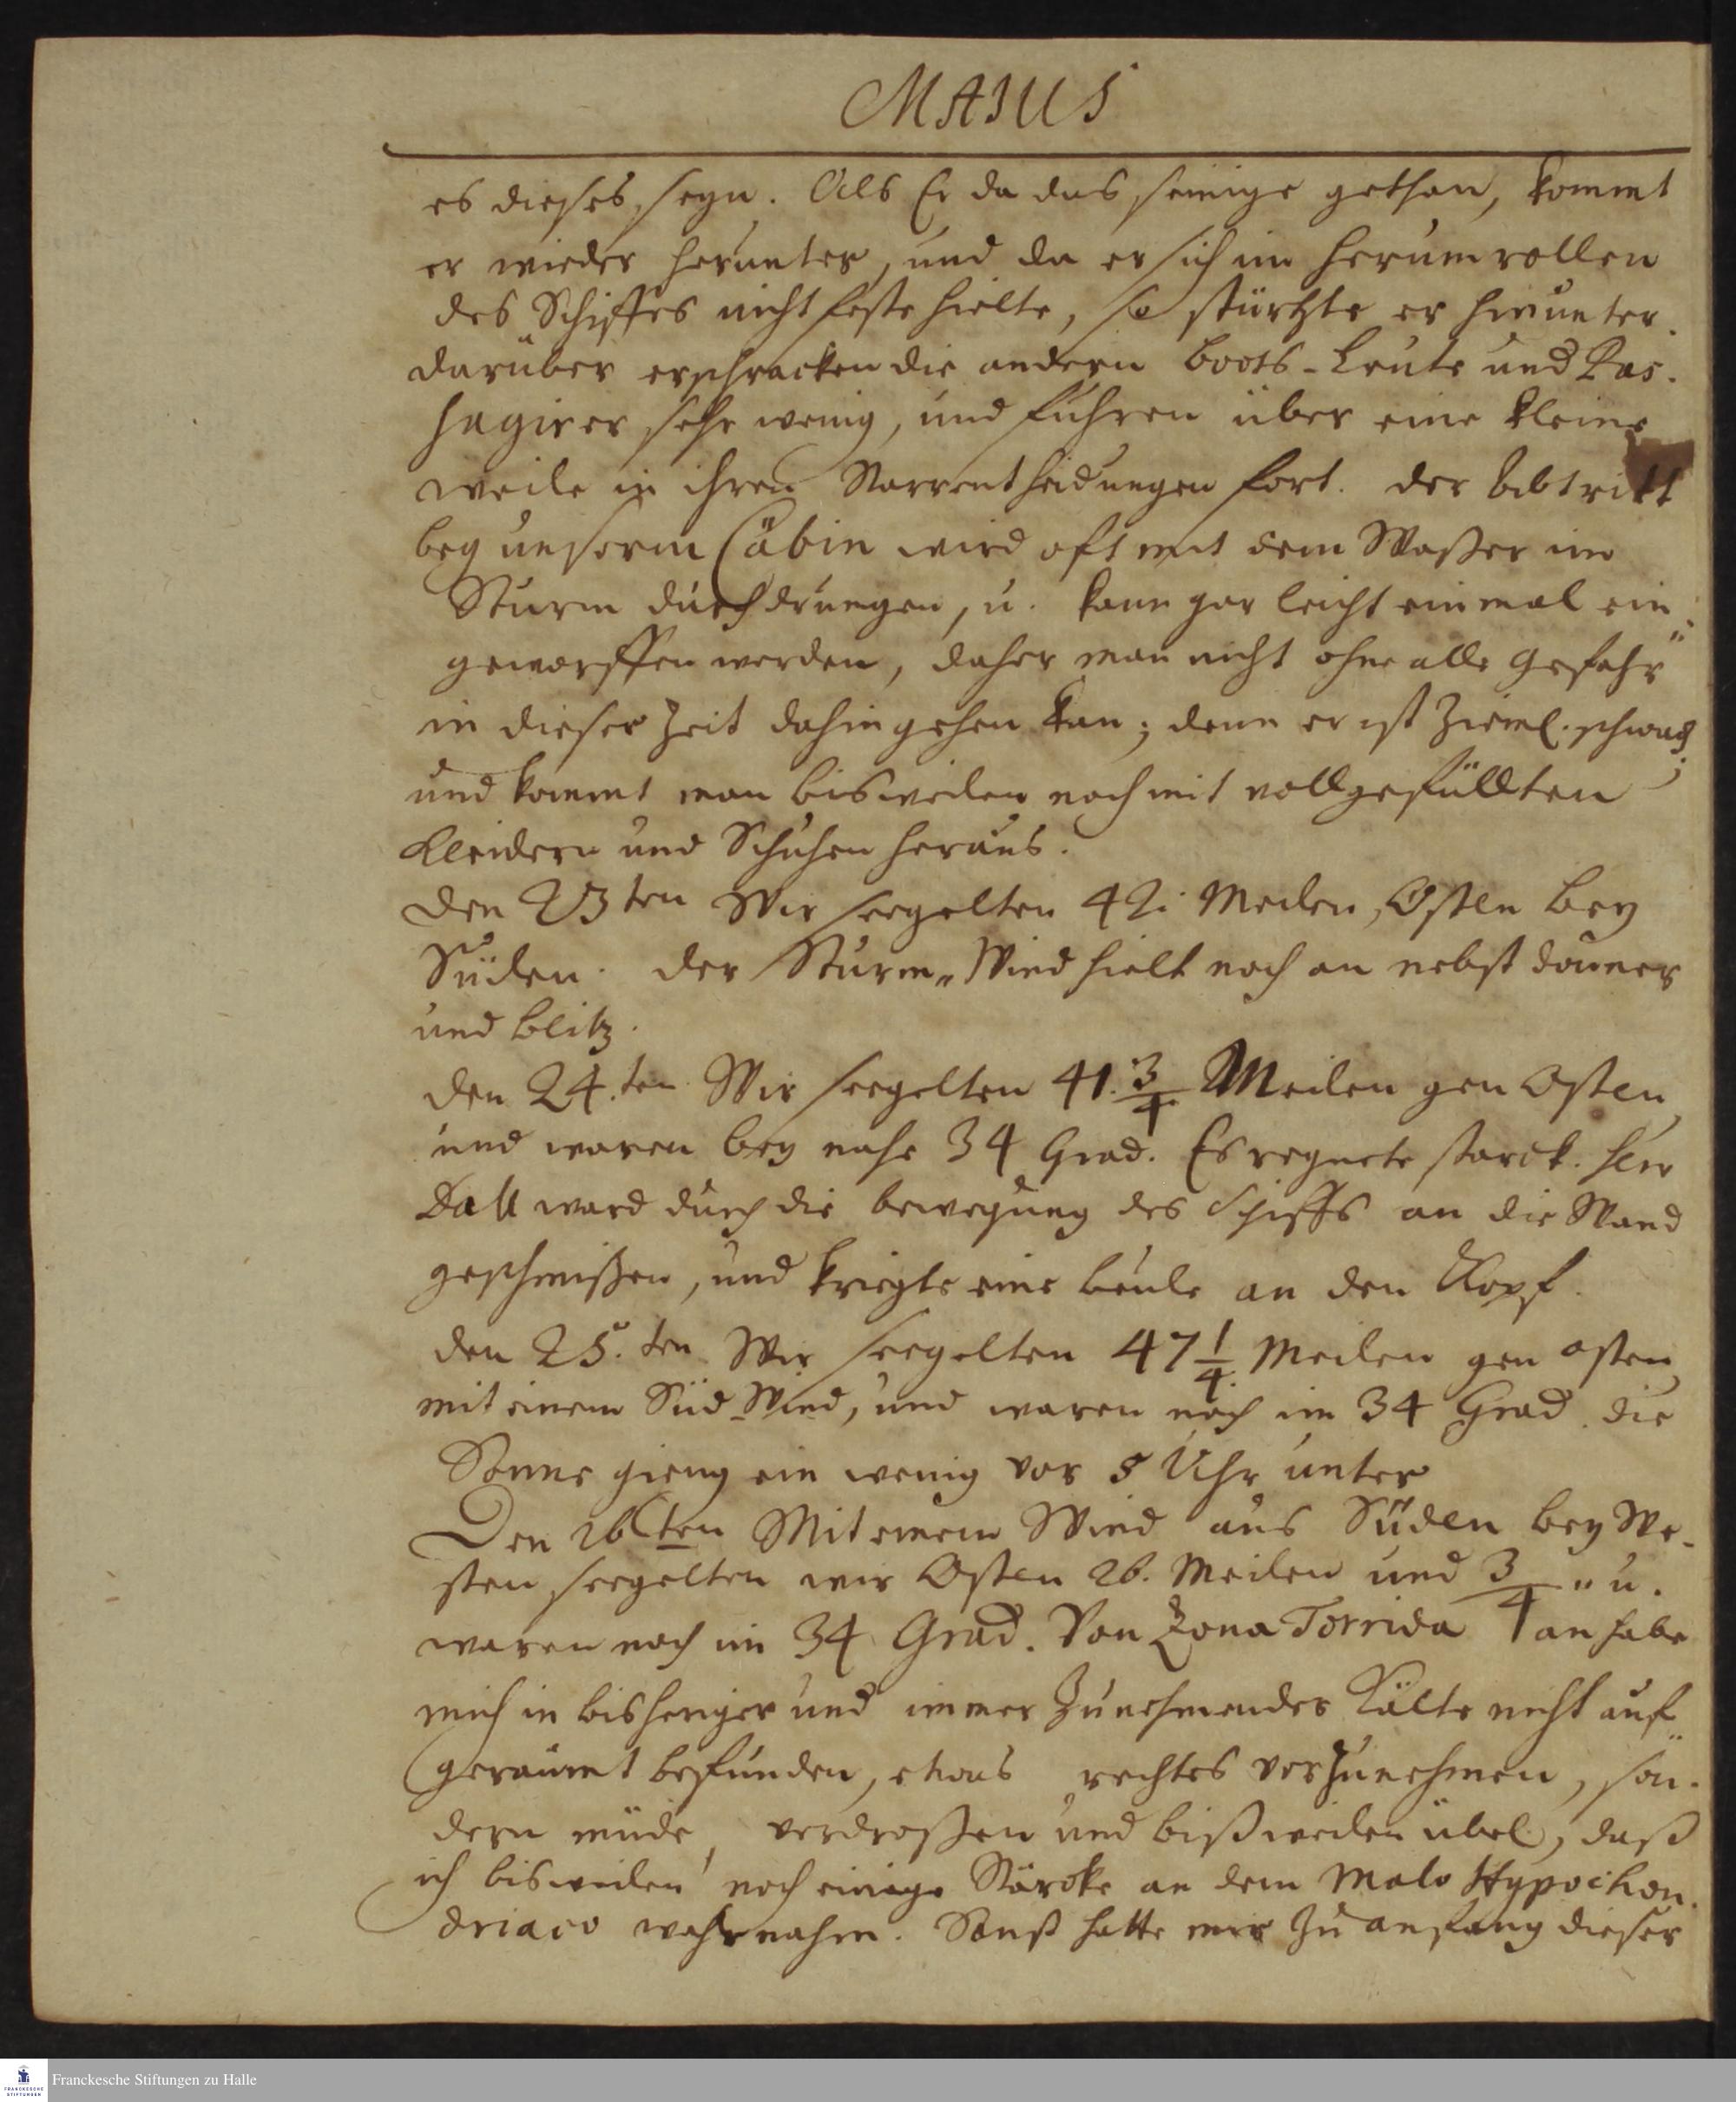 MAJUS
es dieses seyn. Als Er da das seinige gethan, kommt
er wieder herunter, und da er sich im herumrollen
des Schiffes nicht feste hielte, so stürtzte er hinunter.
darüber erschracken die andern boots-Leute und Pas-
sagirer sehr wenig, und fuhren über eine kleine
weile in ihren Narrentheidungen fort. der Abtritt
bey unserm Cäbin wird oft mit dem Waßer im
Sturm durchdrungen, u. kann gar leicht einmal ein-
geworffen werden, daher man nicht ohne alle gefahr
in dieser Zeit dahin gehen kan; denn er ist Zieml. schwach
und kommt man bisweilen noch mit vollgefüllten
Kleidern und Schuhen heraus.
den 23ten Wir seegelten 42. Meilen, Osten bey
Süden. der Sturm-Wind hielt noch an nebst donner
und blitz.
den 24.ten Wir seegelten 41. 3/4 Meilen gen Osten
und waren bey nahe 34 Grad. Es regnete starck. herr
Dall ward durch die bewegung des Schiffs an die Wand
geschmißen, und kriegte eine beule an den Kopf.
den 25.ten Wir seegelten 47 1/4. Meilen gen osten
mit einem Süd-Wind, und waren noch im 34 Grad. die
Sonne gieng ein wenig vor 5 Uhr unter
Den 26ten Mit einem Wind aus Süden bey We-
sten seegelten wir Osten 26. Meilen und 3/4 " u.
waren noch im 34 Grad. Von Zona Torrida an habe
mich in bisheriger und immer Zunehmender Kälte nicht auf-
geraümt befunden, etwas rechtes vorzunehmen, son-
dern müde, verdroßen und bißweilen übel, daß
ich bisweilen noch einige Stärcke an dem Malo Hypochon-
driaco wahrnahm. Sonst hatte mir Zu anfang dieser
Franckesche Stiftungen zu Halle
FRANCKESCHE
STIFTUNGEN